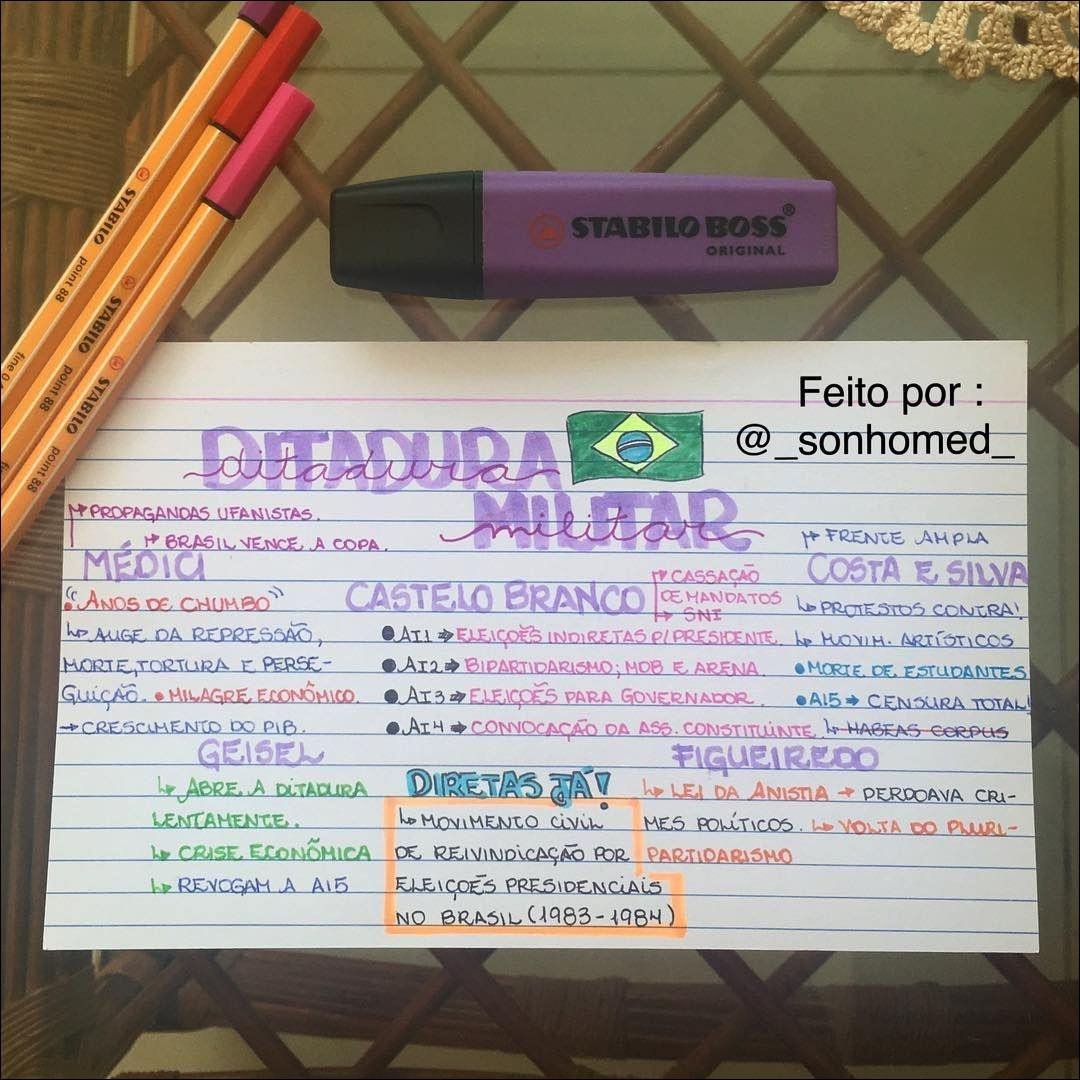 STABILO point 88
STABILO point 88 fine 0.4
STABILO point 88
STABILO BOSS®
ORIGINAL
Feito por :
@_sonhomed_
DITADURA
ditadura
MILITAR
militar
↱ PROPAGANDAS UFANISTAS.
↳ BRASIL VENCE A COPA.
MÉDICI
"ANOS DE CHUMBO"
↳ AUGE DA REPRESSÃO,
MORTE, TORTURA E PERSE-
GUIÇÃO. • MILAGRE ECONÔMICO.
→ CRESCIMENTO DO PIB.
CASTELO BRANCO
CASSAÇÃO
DE MANDATOS
SNI
● AI1 → ELEIÇÕES INDIRETAS P/ PRESIDENTE.
● AI2 → BIPARTIDARISMO; MDB E ARENA.
● AI3 → ELEIÇÕES PARA GOVERNADOR.
● AI4 → CONVOCAÇÃO DA ASS. CONSTITUINTE
↱ FRENTE AMPLA
COSTA E SILVA
↳ PROTESTOS CONTRA!
↳ MOVIM. ARTÍSTICOS
• MORTE DE ESTUDANTES
• AI5 → CENSURA TOTAL!
↳ HABEAS CORPUS
GEISEL
↳ ABRE A DITADURA
LENTAMENTE.
↳ CRISE ECONÔMICA
↳ REVOGAM A AI5
DIRETAS JÁ!
↳ MOVIMENTO CIVIL
DE REIVINDICAÇÃO POR
ELEIÇOÊS PRESIDENCIAIS
NO BRASIL (1983-1984)
FIGUEIREDO
↳ LEI DA ANISTIA → PERDOAVA CRI-
MES POLÍTICOS. ↳ VOLTA DO PLURI-
PARTIDARISMO